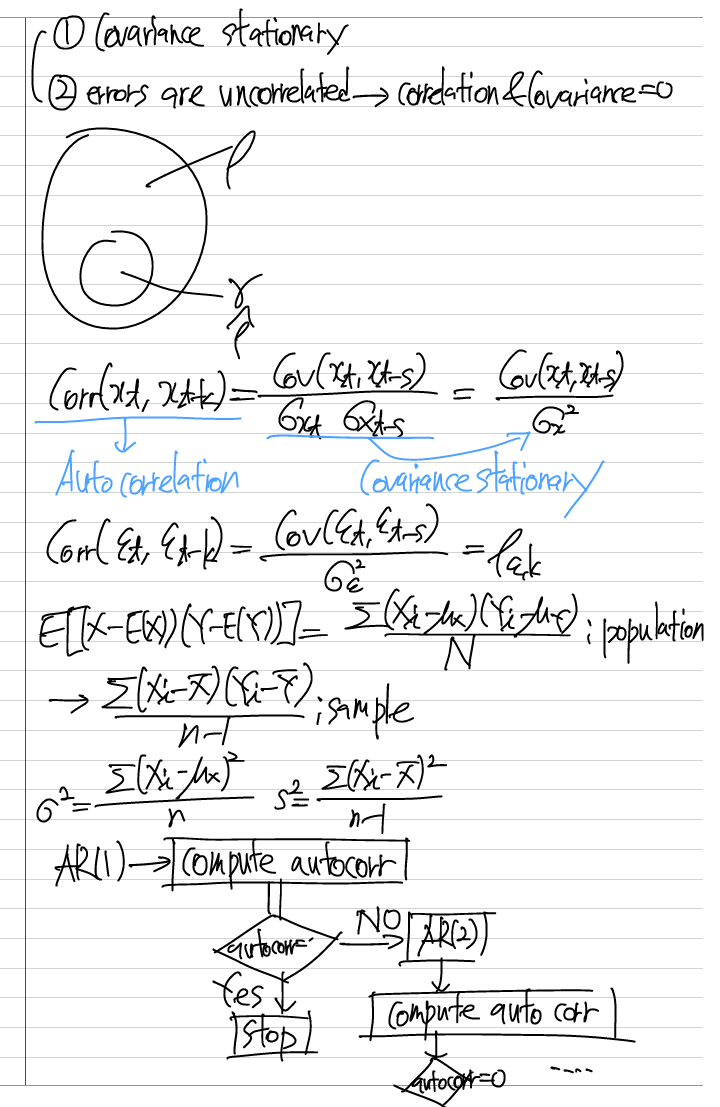 ① Covariance stationary
② errors are uncorrelated → correlation & Covariance = 0
ρ
r
ρ̂
Corr(xt, xt-k) = Cov(xt, xt-s) / σxt σxt-s = Cov(xt, xt-s) / σx²
Autocorrelation
Covariance stationary
Corr(εt, εt-k) = Cov(εt, εt-s) / σε² = ρε,k
E[(X-E(X))(Y-E(Y))] = Σ(Xi-μx)(Yi-μY) / N ; population
→ Σ(Xi-X̄)(Yi-Ȳ) / n-1 ; sample
σ² = Σ(Xi-μx)² / n s² = Σ(Xi-X̄)² / n-1
AR(1) → compute autocorr
autocorr=
NO
AR(2)
Yes
stop
compute auto corr
autocorr=0 ----